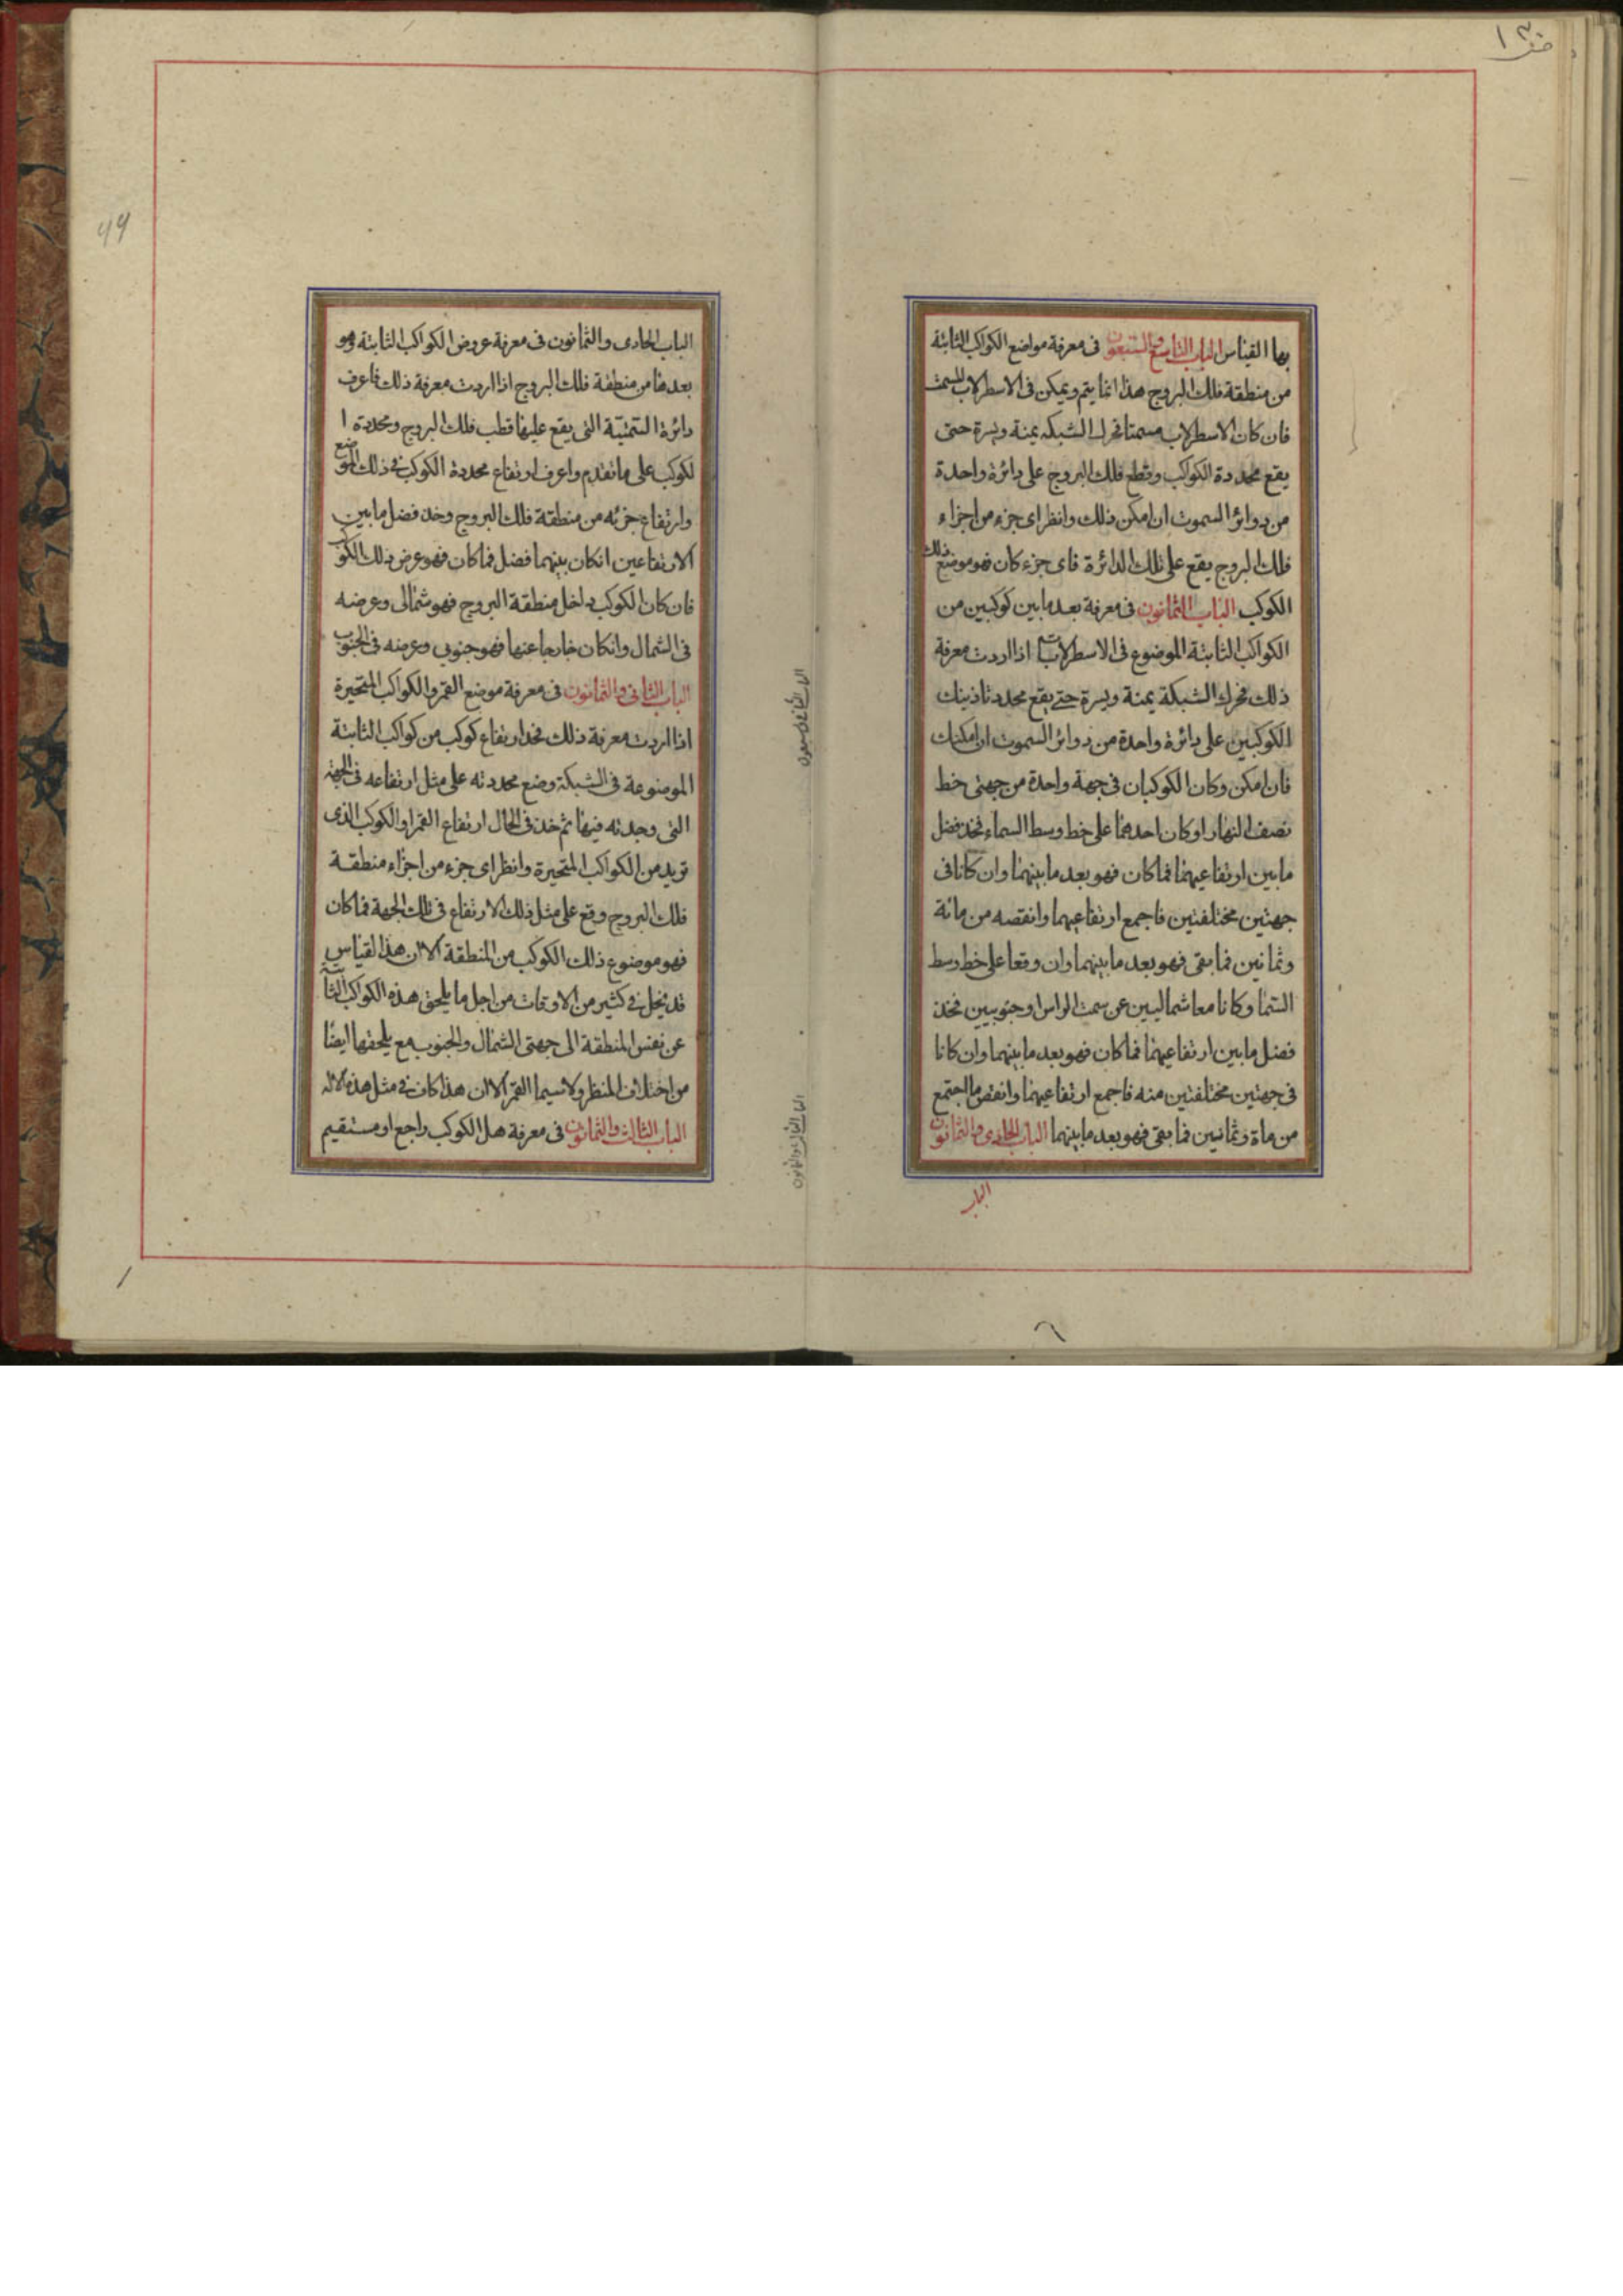 بها القياس الباب التاسع والسبعون فى معرفة مواضع الكواكب الثابتة
من منطقة فلك البروج هذا انما يتم ويمكن فى الاسطرلاب المسمت
فان كان الاسطرلاب مسمتا فحرك الشبكه يمنة ويسرة حتى
يقع محددة الكواكب وقطع فلك البروج على دائرة واحدة
من دوائر السموت ان امكن ذلك وانظر اى جزء من اجزاء
فلك البروج يقع على تلك الدائرة فاى جزء كان فهو موضع ذلك
الكوكب الباب الثمانون فى معرفة بعد ما بين كوكبين من
الكواكب الثابتة الموضوع فى الاسطرلاب اذا اردت معرفة
ذلك فحرك الشبكة يمنة ويسرة حتى يقع محددتا ذينك
الكوكبين على دائرة واحدة من دوائر السموت ان امكنك
فان امكن وكان الكوكبان فى جهة واحدة من جهتى خط
نصف النهار او كان احدهما على خط وسط السماء فخذ فضل
ما بين ارتفاعيهما فما كان فهو بعد ما بينهما وان كانا فى
جهتين مختلفتين فاجمع ارتفاعيهما وانقصه من مائة
وثمانين فما بقى فهو بعد ما بينهما وان وقعا على خط وسط
السما وكانا معا شماليين عن سمت الراس او جنوبيين فخذ
فضل ما بين ارتفاعيهما فما كان فهو بعد ما بينهما وان كانا
فى جهتين مختلفتين منه فاجمع ارتفاعيهما وانقص ما اجتمع
من ماة وثمانين فما بقى فهو بعد ما بينهما الباب الحادى والثمانون
الباب
الباب الحادى والثمانون فى معرفة عروض الكواكب الثابتة وهو
بعدها من منطقة فلك البروج اذا اردت معرفة ذلك فاعرف
دائرة السمتية التى يقع عليها قطب فلك البروج ومحددة ا
لكوكب على ما تقدم واعرف ارتفاع محددة الكوكب فى ذلك الموضع
وارتفاع جزئه من منطقة فلك البروج وخذ فضل ما بين
الارتفاعين انكان بينهما فضل فما كان فهو عرض ذلك الكوكب
فان كان الكوكب داخل منطقة البروج فهو شمالى وعرضه
فى الشمال وانكان خارجا عنها فهو جنوبى وعرضه فى الجنوب
الباب الثانى والثمانون فى معرفة موضع القمر والكواكب المتحيرة
اذا اردت معرفة ذلك فخذ ارتفاع كوكب من كواكب الثابتة
الموضوعة فى الشبكة وضع محددته على مثل ارتفاعه فى الجهة
التى وجدته فيها ثم خذ فى الحال ارتفاع القمر او الكوكب الذى
تريد من الكواكب المتحيرة وانظر اى جزء من اجزاء منطقة
فلك البروج وقع على مثل ذلك الارتفاع فى تلك الجهة فما كان
فهو موضوع ذلك الكوكب من المنطقة الا ان هذا القياس
قد يخل فى كثير من الاوقات من اجل ما يلحق هذه الكواكب
عن نفس المنطقة الى جهتى الشمال والجنوب مع يلحقها ايضا
من اختلاف المنظر ولا سيما القمر الا ان هذا كان فى مثل هذه الاله
الباب الثالث والثمانون فى معرفة هل الكوكب راجع او مستقيم